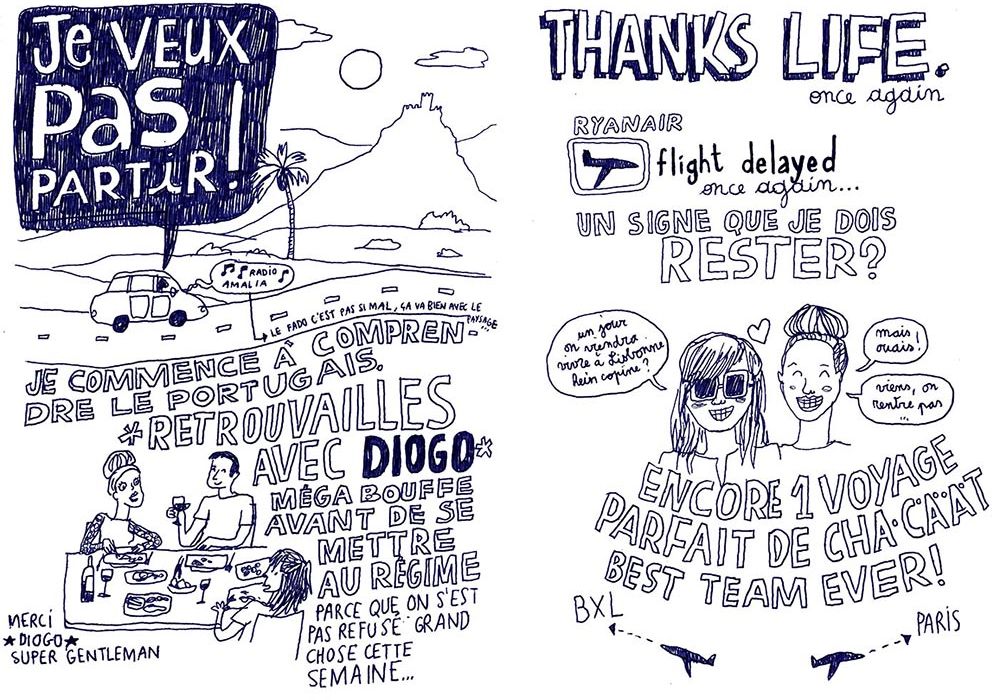 Je VEUX
PaS !
PARTiR.
RADIO
AMALIA
LE FADO C'EST PAS SI MAL, ÇA VA BIEN AVEC LE
PAYSAGE
JE COMMENCE À COMPREN-
DRE LE PORTUGAIS.
*RETROUVAILLES
AVEC DIOGO*
MÉGA BOUFFE
AVANT DE SE
METTRE
AU RÉGIME
PARCE QUE ON S'EST
PAS REFUSÉ GRAND
CHOSE CETTE
SEMAINE...
MERCI
★DIOGO★
SUPER GENTLEMAN
THANKS LIFE.
once again
RYANAIR
flight delayed
once again...
UN SIGNE QUE JE DOIS
RESTER?
un jour
on viendra
vivre à Lisbonne
hein copine?
mais
ouais!
viens, on
rentre pas
...
ENCORE 1 VOYAGE
PARFAIT DE CHA·CÄÄT
BEST TEAM EVER!
BXL
PARIS